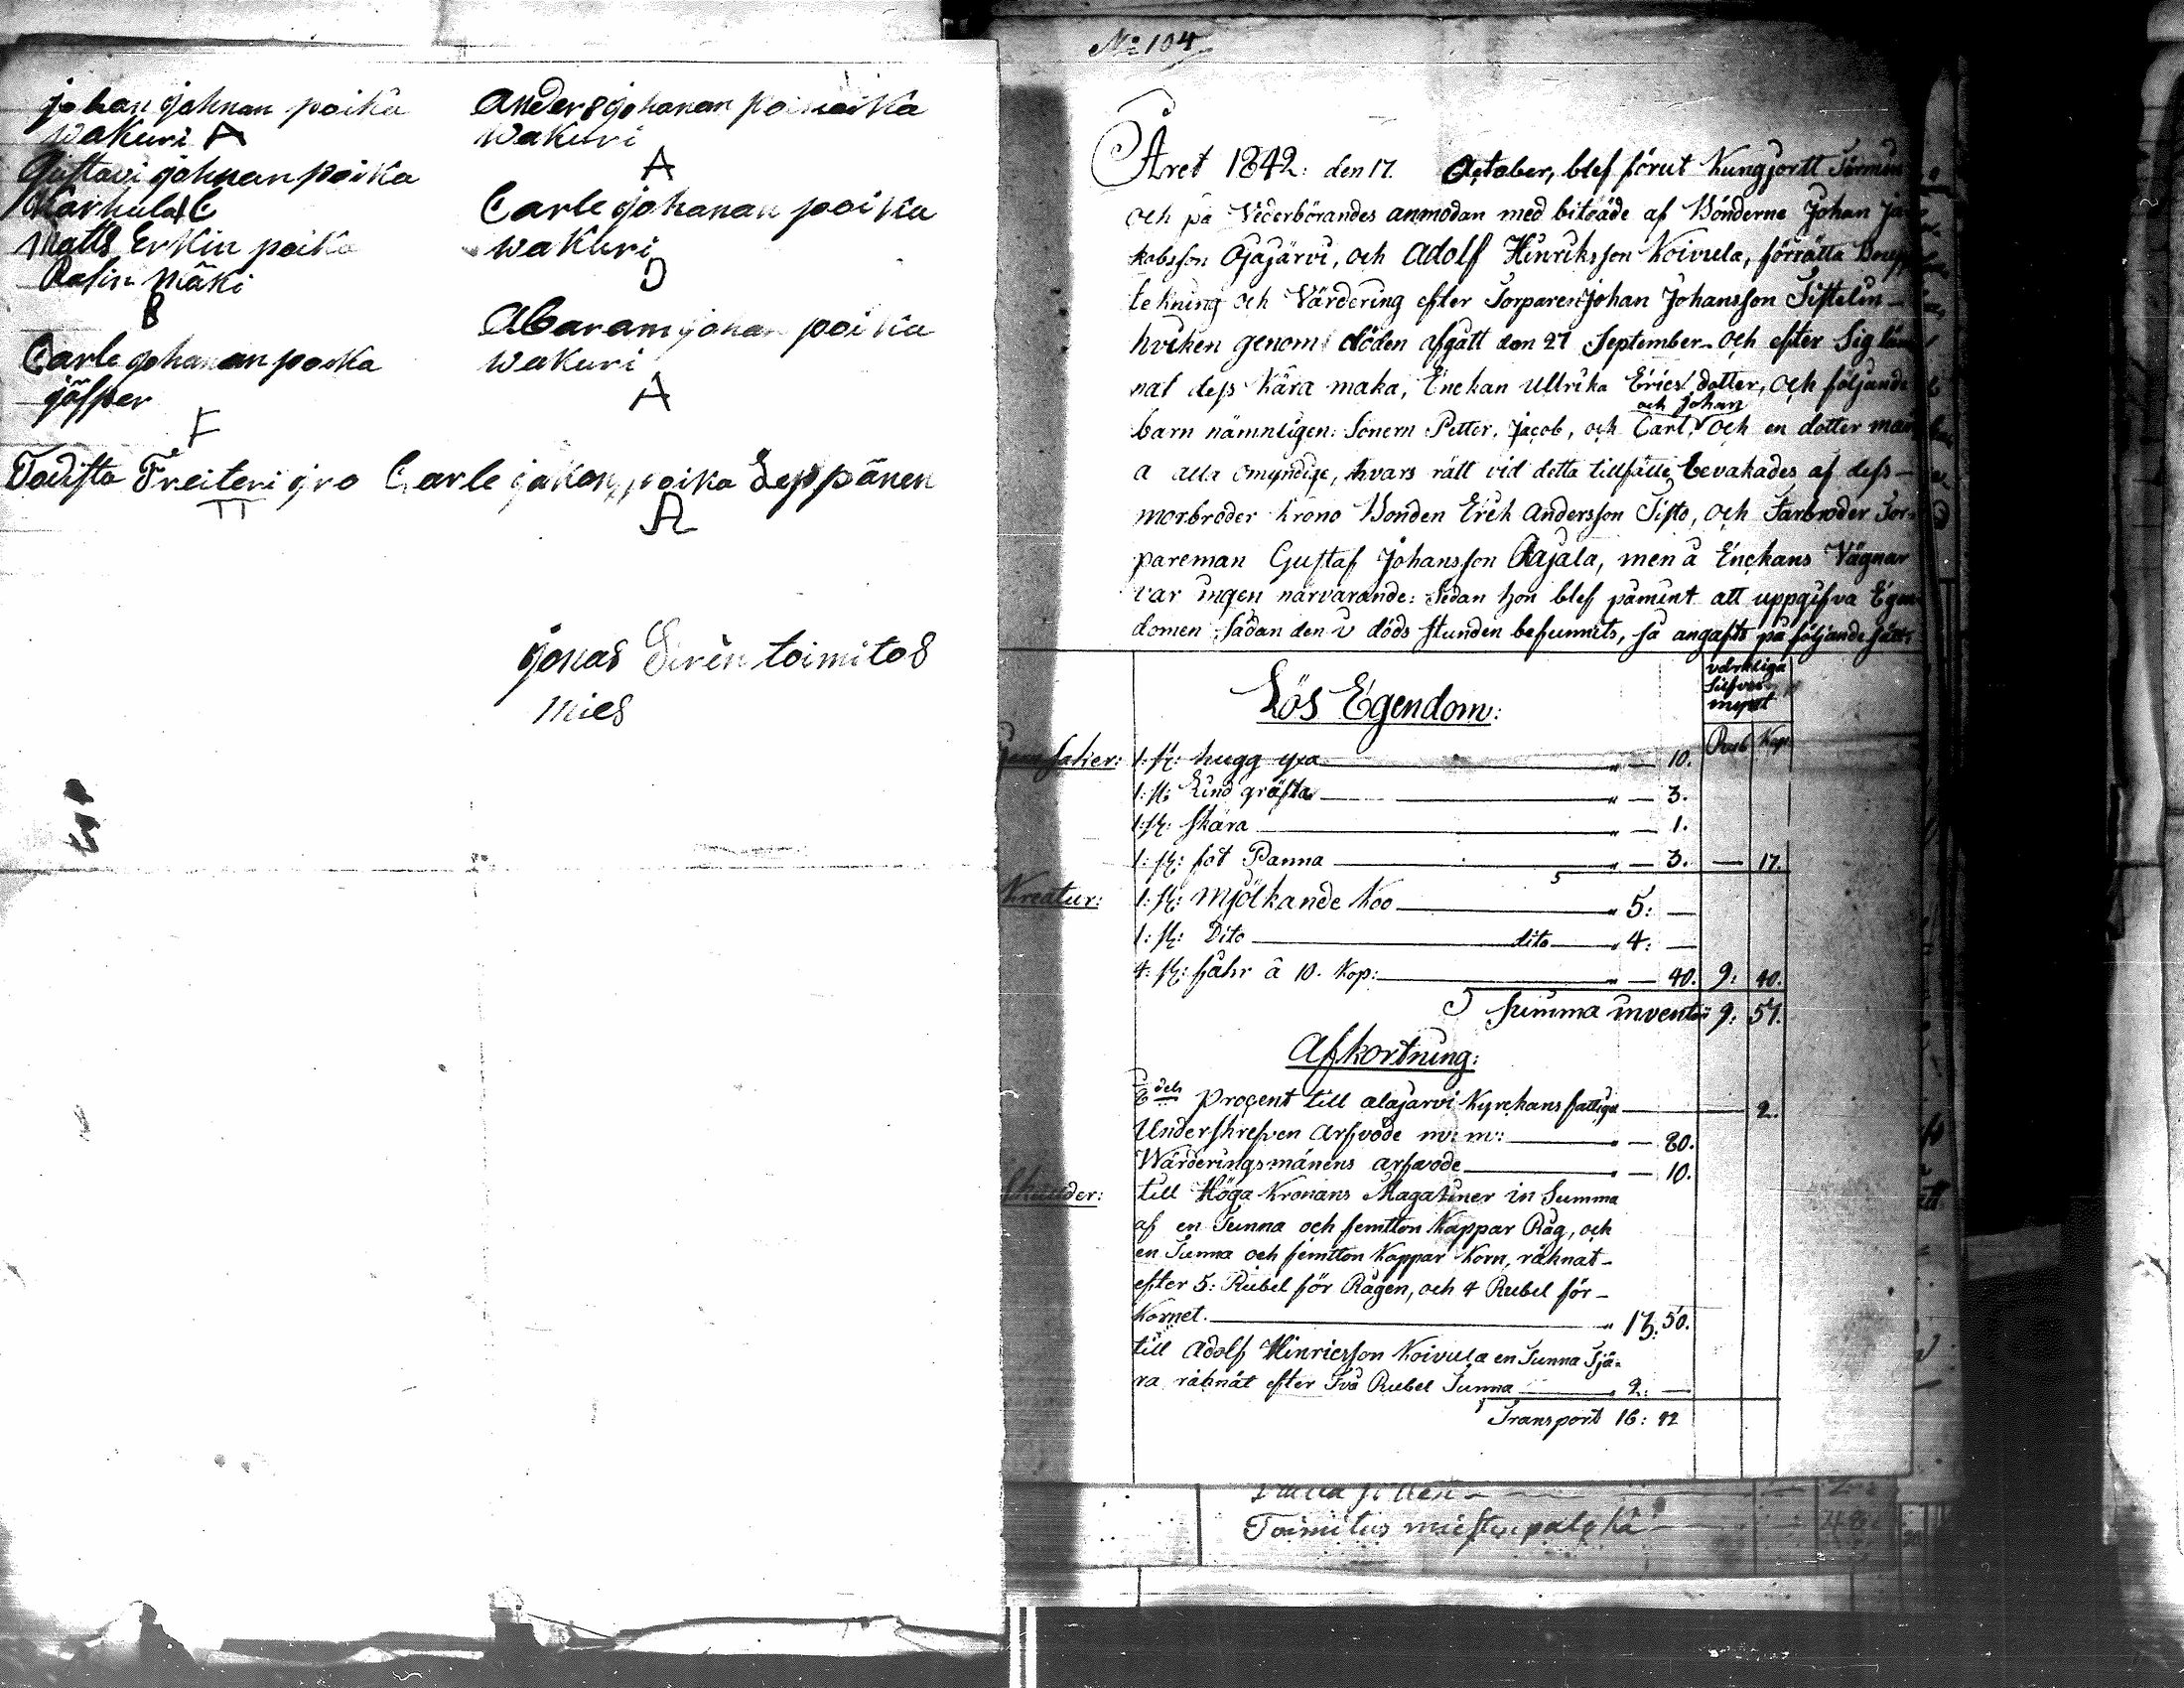 johan johnan poika
wakuri A
Gustavi johnan poika
Karhula C
Matts Erkin poika
Rasin mäki
B
Carle johanan poika
jösper
F
Anders johanan poika
wakuri
A
Carle johanan poika
wakuri
D
Abaram johan poika
wakuri
A
Todista Freiteri jro Carle jakon poika Leppänen
TT A
jonas Sirèn toimitos
mies
No 104
Året 1842: den 17. October, blef förut Kungjortt Termin
och på Vederbörandes anmodan med biträde af Bönderne Johan Ja-
kobsson Ojajärvi, och Adolf Hinriksson Koivula, förrätta Boupp
tekning och Värdering efter Torparen Johan Johansson Tistelin
hvilken genom döden afgått den 27 September och efter Sig läm
nat dess Kära maka, Enckan Ullrika Erics dotter, och följande
och Johan
barn nämnligen: Sonern Petter, Jacob, och Carl, och en dotter mari
a alla omyndige, hvars rätt vid detta tillfälle bevakades af dess
morbroder krono Bonden Erik Andersson Sisto, och Farbroder Tor-
pareman Gustaf Johansson Rajala, men å Enckans Vägnar
var ingen närvarande: Sedan hon blef påmint att uppgifva Egen
domen sådan den i döds stunden befunnits, så angafts på följande sätt:
verkliga
Silfver
mynt
Lös Egendom:
Rub Kop
Jern saker: 1: st: hugg yxa " — 10.
1: st: Lind gräfta " — 3.
1: st: skära " — 1.
1: st: fot Panna " — 3. — 17.
Kreatur: 1: st: mjölkande Koo " 5: —
1: st: Dito dito 4: —
4: st: fåhr à 10. Kop: " — 40. 9: 40.
Summa invent: 9: 57.
Afkortning:
dels procent till alajärvi Kyrckans fattiga 2.
Underskrefven Arfvode m: m: — 80.
Wärderingsmänens arfvode — 10.
Skulder: till Höga Kronans Magatiner in Summa
af en Tunna och femtton Kappar Råg, och
en Tunna och femtton Kappar Korn, räknat
efter 5: Rubel för Rågen, och 4 Rubel för
Kornet. " 13: 50.
till Adolf Hinricsson Koivula en Tunna Tjä-
ra räknat efter Två Rubel Tunna 2: —
Transport 16: 42
Toimitus miesten palcka 48